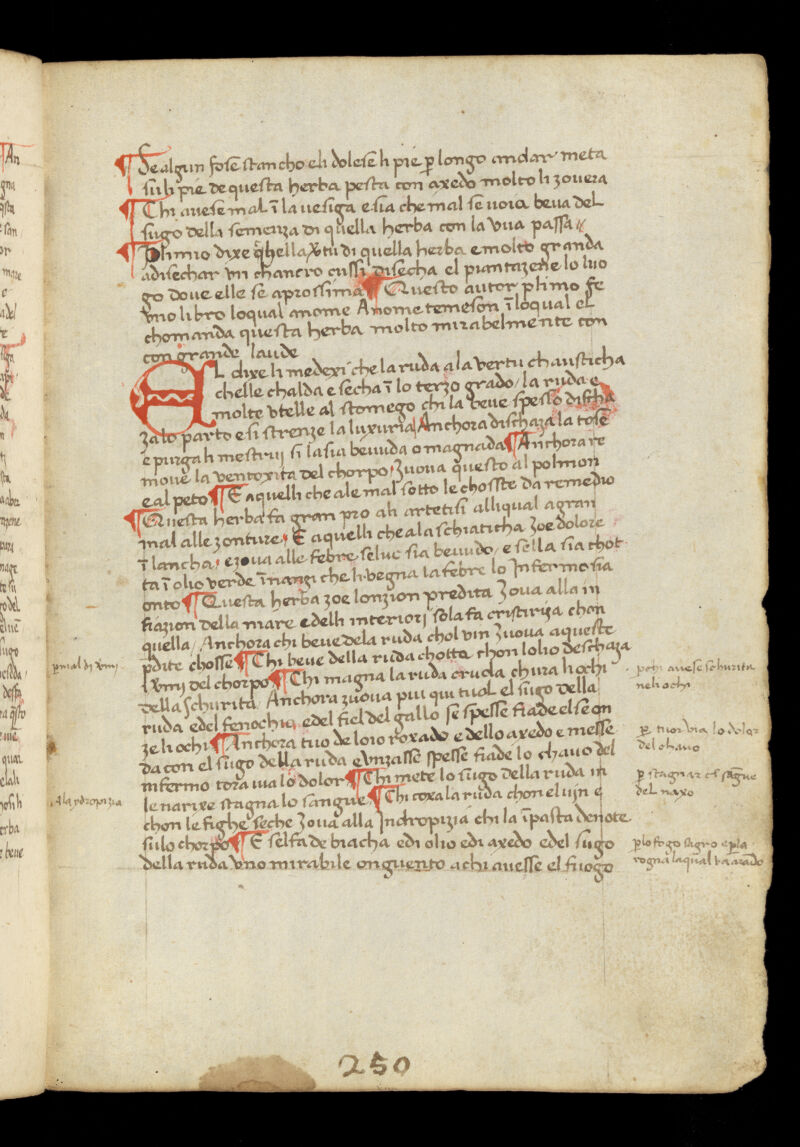 Se algun fose stancho eli dolese li pie p longo andar meta
sul pie de questa herba pesta con axedo molto li zovera
Chi avese mal ĩ la vesiga e sia che mal se voia beva del
sugo della semenza di quella herba con la vua passa
Plimio dixe qͥhella v̄tu di quella herba e molto granda
adisechar vn chancro cussi disecha el piantazene lo luo
go dove elle se aprossima Questo autor plimo fe
vno libro loqual anome A nome temeson ĩ loqual el
chomanda questa herba molto mirabelmente con
con grande laude
El dixe li medexi che la ruda a la vertu chausticha
chelle chalda e secha ĩ lo terzo grado / la ruda e
molte vtelle al stomego chi la beve spesso discha
za lo parto e si strenze la luxuria Anchora dischaza la tose
e purga li mestrui si la sia bevuda o magnada Anchora re
move la ventoxita del chorpo / zuova questo al polmon
e al peto E aquelli che ale mal sotto le chosste da remedio
Questa herba fa gran pro ali artetisi alliqual a gran
mal alle zonture E aquelli che ala schiaticha zoe dolore
ĩ lancha ezova alle febre seluc sia bevudo / e sella sia chot
ta ĩ olio verde ĩnanzi che li vegna la febre lo Infermo sia
onto Questa herba zoe lonzion predita zova alla in
fiazion della mare edelli interiori sola fa cristiriza chon
quella / Anchora chi beve dela ruda chol vin zuova aqueste
pdite chosse Chi beve della ruda chotta chon lolio deschaza
i vmi del chorpo Chi magna la ruda cruda chura li ochi
della schurita / Anchora zuova piu qui tuol el sugo della
ruda edel fenochio edel fiel del gallo se spesse fiade el se on
ze li ochi Anchora tuo de loio roxado e dello axedo e messe
da con el sugo della ruda evnzasse spesse fiade lo chavo del
infermo tora uia lo dolor Chi mete lo sugo della ruda in
le narixe stagna lo sangue Chi coxa la ruda chon el uin e
chon le fighe seche zova alla Indropizia chi la ĩpasta denote
sulo chorpo E selfa de biacha edi olio edi axedo edel sugo
della ruda vno mirabile onguento achi avesse el fuogo
p mal di vmi
pchi avese schurita
neli ochi
p tuor via lo dolor
del chavo
p stagnar el sāgue
del naxo
ala ydropizia
plo fogo sagro e pla
rogna laqual va
250